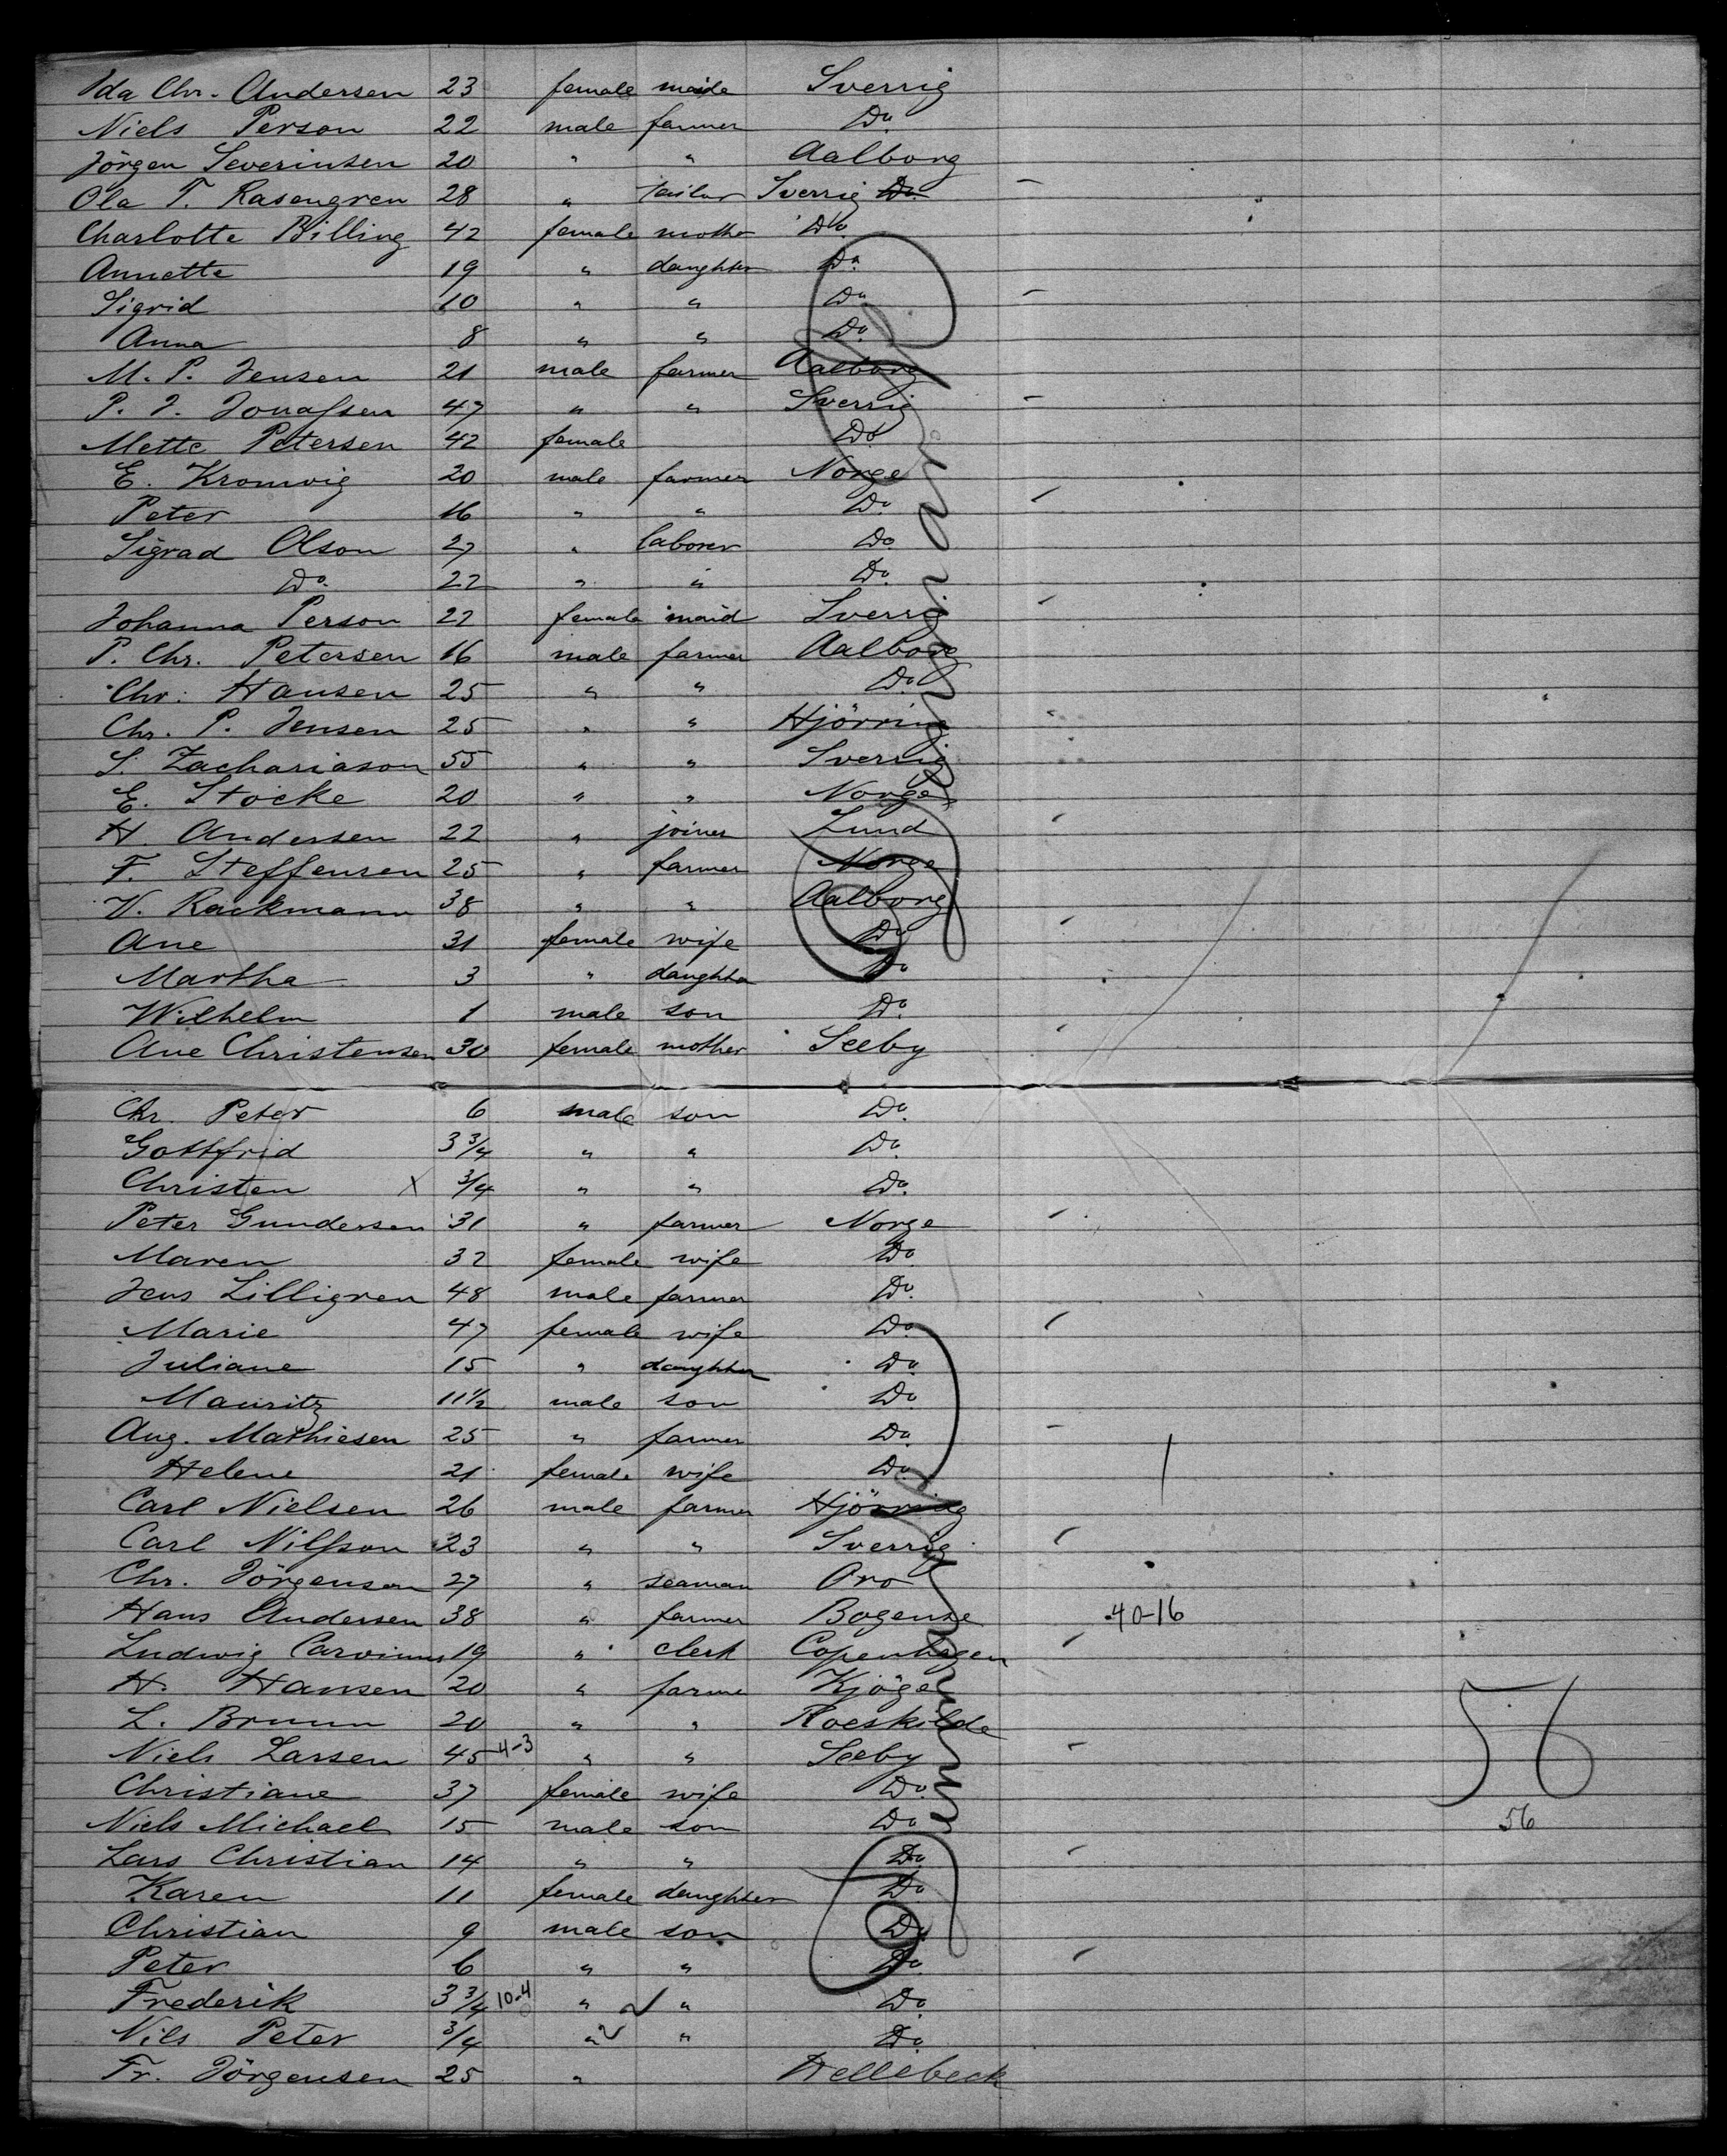 Ida Chr. Andersen 23 female maide Sverrig
Niels Person 22 male farmer Do.
Jörgen Severinsen 20 " " Aalborg
Ola T. Rasengren 28 " tailor Sverrig Do.
Charlotte Billing 42 female mother Do.
Annette 19 " daughter Do.
Sigrid 10 " " Do.
Anna 8 " " Do.
M. P. Jensen 21 male farmer Aalborg
P. J. Jonassen 47 " " Sverrig
Mette Petersen 42 female Do.
E. Kromvig 20 male farmer Norge
Peter 16 " " Do.
Sigrad Olson 27 " laborer Do.
Do. 22 " " Do.
Johanna Person 22 female maid Sverrig
P. Chr. Petersen 16 male farmer Aalborg
Chr. Hansen 25 " " Do.
Chr. P. Jensen 25 " " Hjörring
S. Zachariason 55 " " Sverrig
E. Stocke 20 " " Norge
H. Andersen 22 " joiner Lund
F. Steffensen 25 " farmer Norge
W. Rackmann 38 " " Aalborg
Ane 31 female wife Do.
Martha 3 " daughter Do.
Wilhelm 1 male son Do.
Ane Christensen 30 female mother Seeby
Chr. Peter 6 male son Do.
Gottfrid 3 3/4 " " Do.
Christen X 3/4 " " Do.
Peter Gundersen 31 " farmer Norge
Maren 32 female wife Do.
Jens Lilligren 48 male farmer Do.
Marie 47 female wife Do.
Juliane 15 " daughter Do.
Mauritz 11 1/2 male son Do.
Aug. Mathiesen 25 " farmer Do.
Helene 21 female wife Do.
Carl Nielsen 26 male farmer Hjörring
Carl Nilsson 23 " " Sverrig
Chr. Jörgensen 27 " seaman Oro
Hans Andersen 38 " farmer Bogense 40-16
Ludwig Carvinus 19 " clerk Copenhagen
H. Hansen 20 " farme Kjöge
L. Bruun 20 " " Roeskilde 56
Niels Larsen 45 4-3 " " Seeby
Christiane 37 female wife Do.
Niels Michael 15 male son Do. 56
Lars Christian 14 " " Do.
Karen 11 female daughter Do.
Christian 9 male son Do.
Peter 6 " " Do.
Frederik 3 3/4 10-4 " " Do.
Nils Peter 3/4 " " Do.
Fr. Jörgensen 25 " Hellebeck